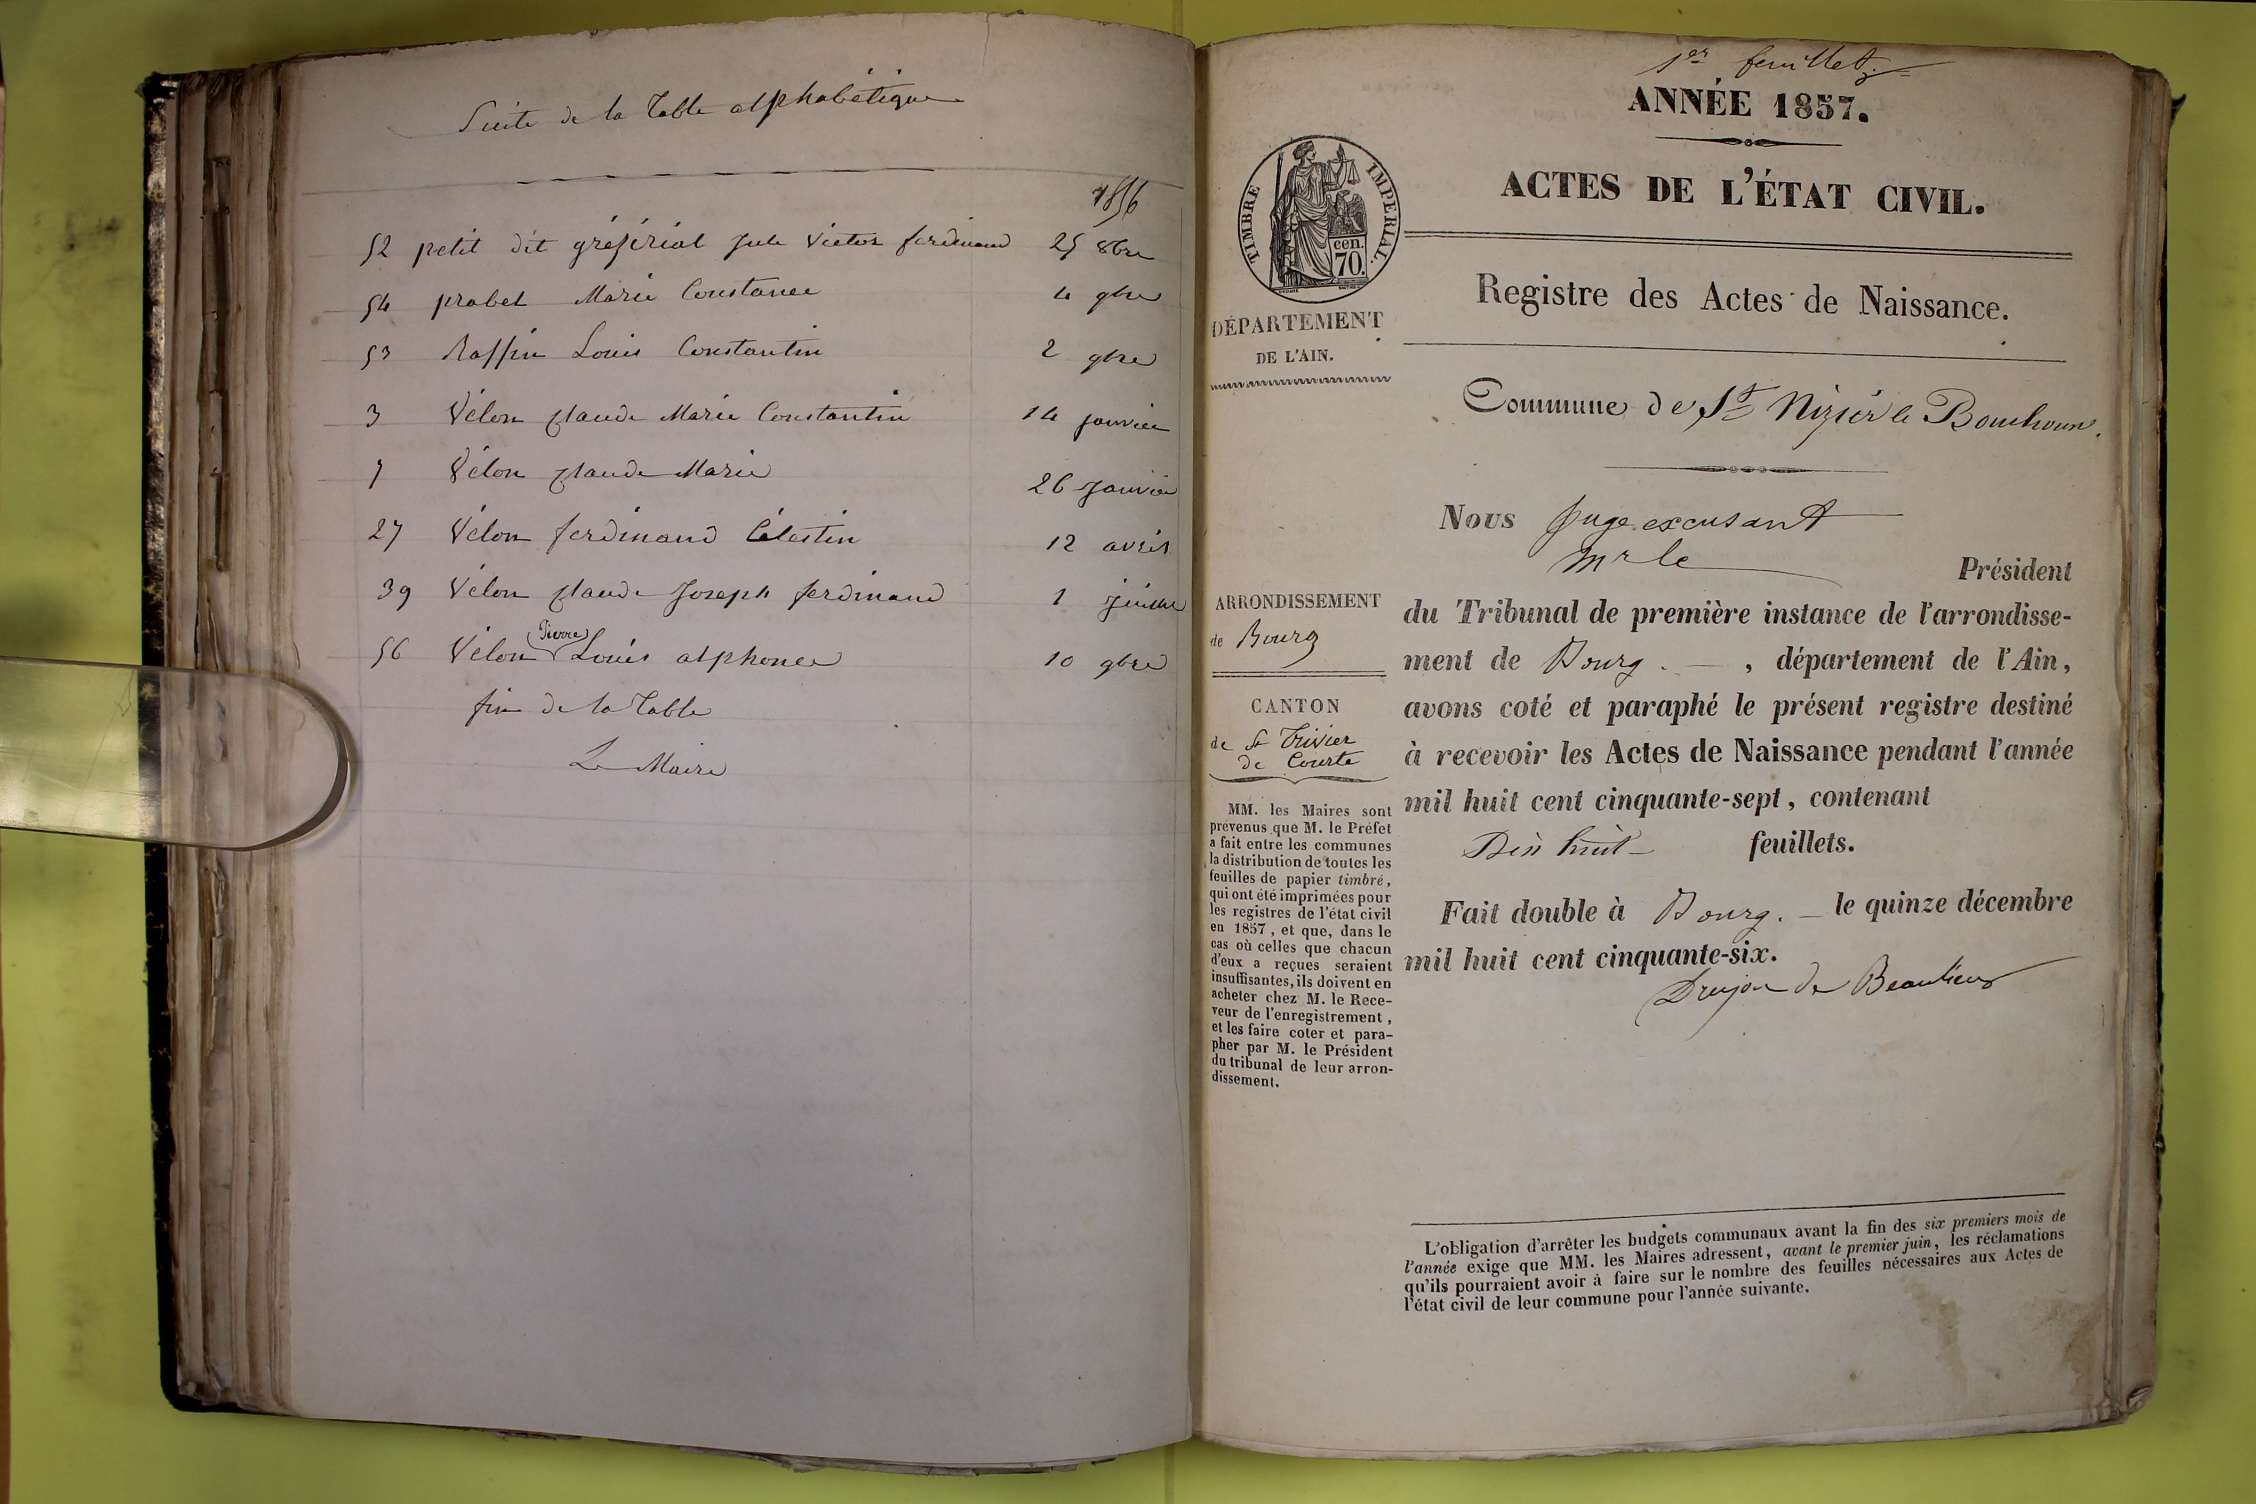 Suite de la Table alphabétique
1856
52 petit dit Jule Victor ferdinand 25 8bre
54 probet Marie Constance 4 9bre
53 Raffin Louis Constantin 2 9bre
3 Vélon Claude Marie Constantin 14 janvier
7 Vélon Claude Marie 26 Janvier
27 Vélon ferdinand Célestin 12 avril
39 Vélon Claude Joseph ferdinand 1 juillet
56 Vélon (Pierre) Louis alphonce 10 9bre
fin de la Table
Le Maire
1er feuillet
ANNÉE 1857.
ACTES DE L'ÉTAT CIVIL.
Registre des Actes de Naissance.
TIMBRE IMPERIAL.
cen.
70.
DÉPARTEMENT
DE L'AIN.
Commune de St Nizier le Bouchoux.
Nous Juge excusant
Mr le Président
du Tribunal de première instance de l'arrondisse-
ment de Bourg. — , département de l'Ain,
avons coté et paraphé le présent registre destiné
à recevoir les Actes de Naissance pendant l'année
mil huit cent cinquante-sept, contenant
Dix huit feuillets.
Fait double à Bourg. — le quinze décembre
mil huit cent cinquante-six.
Drujon de Beaulieu
ARRONDISSEMENT
de Bourg
CANTON
de St Trivier
de Courte
MM. les Maires sont
prévenus que M. le Préfet
a fait entre les communes
la distribution de toutes les
feuilles de papier timbré,
qui ont été imprimées pour
les registres de l'état civil
en 1857, et que, dans le
cas où celles que chacun
d'eux a reçues seraient
insuffisantes, ils doivent en
acheter chez M. le Rece-
veur de l'enregistrement,
et les faire coter et para-
pher par M. le Président
du tribunal de leur arron-
dissement.
L'obligation d'arrêter les budgets communaux avant la fin des six premiers mois de
l'année exige que MM. les Maires adressent, avant le premier juin, les réclamations
qu'ils pourraient avoir à faire sur le nombre des feuilles nécessaires aux Actes de
l'état civil de leur commune pour l'année suivante.